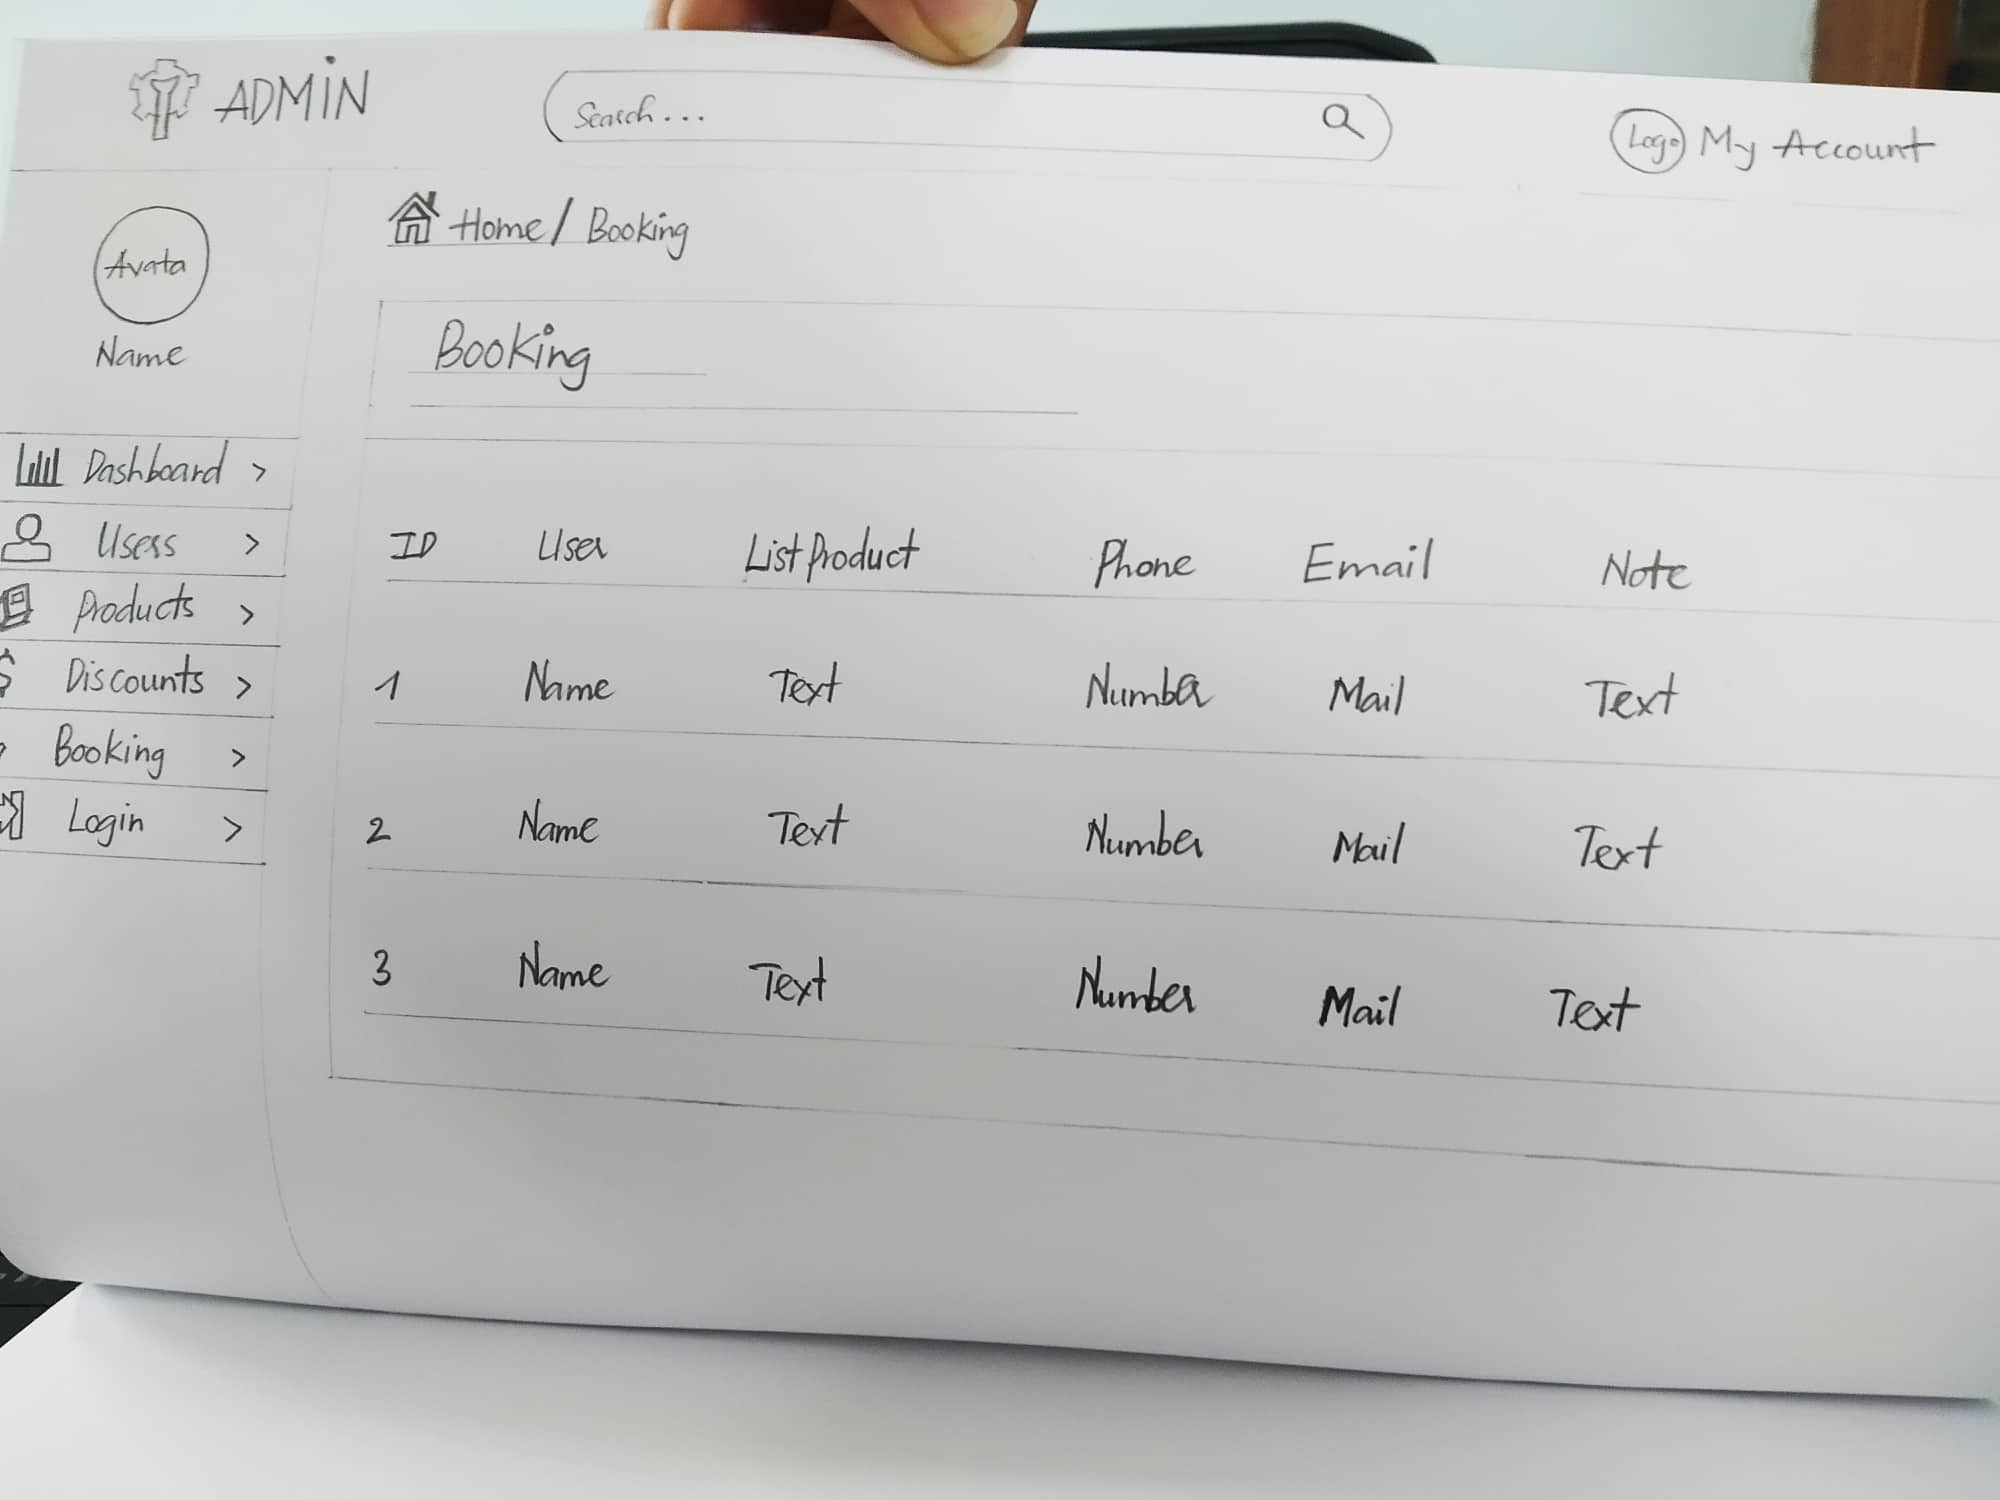 ADMIN
Search...
Logo My Account
Home / Booking
Avata
Name
Booking
Dashboard >
Users >
Products >
Discounts >
Booking >
Login >
ID User List Product Phone Email Note
1 Name Text Number Mail Text
2 Name Text Number Mail Text
3 Name Text Number Mail Text